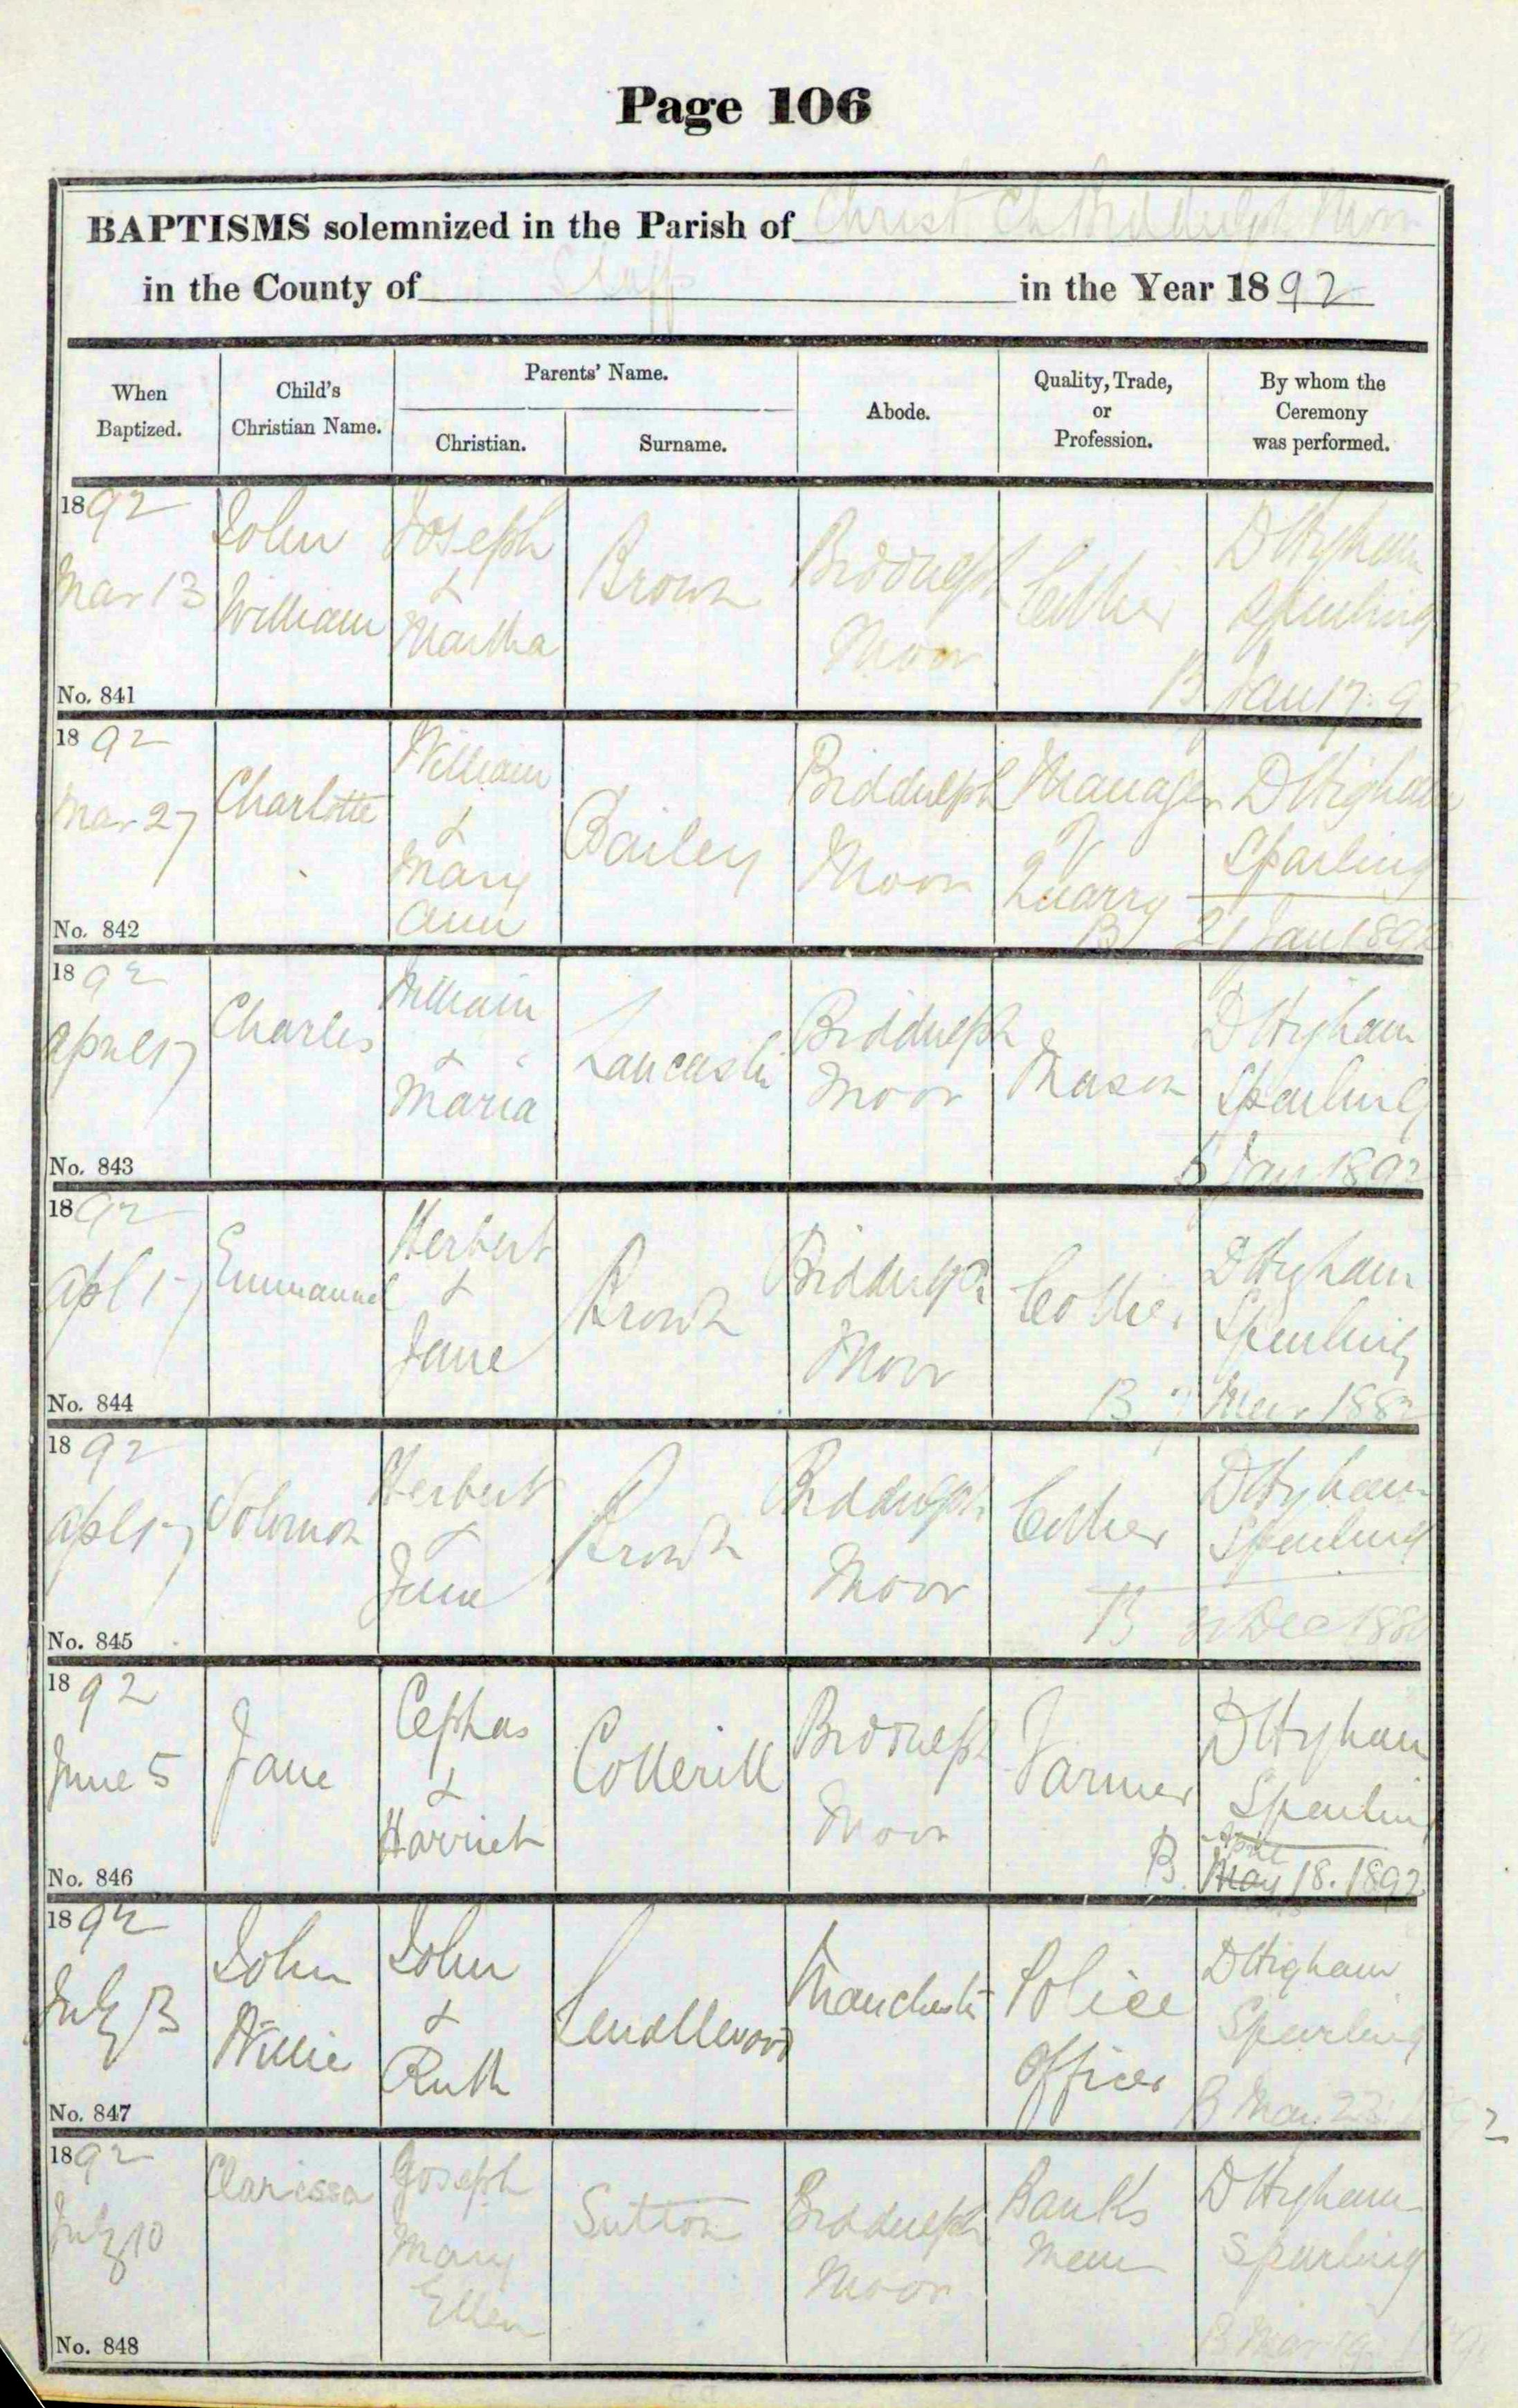 Page 106
BAPTISMS solemnized in the Parish of Christ Ch Biddulph Moor
in the County of Staff in the Year 1892
When Baptized.
Child's Christian Name.
Parents' Name.
Christian.
Surname.
Abode.
Quality, Trade, or Profession.
By whom the Ceremony was performed.
1892
Mar 13
No. 841
John
William
Joseph
&
Martha
Brown
Biddulph
Moor
Collier
D Higham
Spurling
B Jan 17. 9
1892
Mar 27
No. 842
Charlotte
William
&
Mary
Ann
Bailey
Biddulph
Moor
Manager
Quarry
D Higham
Sparling
B 21 Jan 1892
1892
April 17
No. 843
Charles
William
&
Maria
Biddulph
Moor
Mason
D Higham
Sparling
Jan 1892
1892
Apl 17
No. 844
Emmanuel
Herbert
&
Jane
Brown
Biddulph
Moor
Collier
D Higham
Spurling
B
1892
Apl 17
No. 845
Solomon
Herbert
&
Jane
Brown
Biddulph
Moor
Collier
D Higham
Spurling
B Dec
1892
June 5
No. 846
Jane
Cephas
&
Harriet
Cotterill
Biddulph
Moor
Farmer
D Higham
Spurlin
B. May 18. 1892
1892
July
No. 847
John
Willie
John
&
Ruth
Police
Officer
D Higham
Spurling
B May 23
1892
July 10
No. 848
Clarissa
Joseph
Mary
Ellen
Sutton
Biddulph
Moor
Banks
Man
D Higham
Spurling